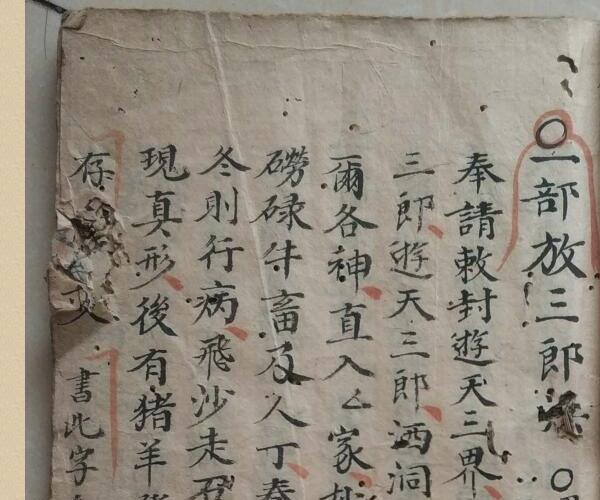 ○一部放三郎
奉請敕封遊天三界
三郎遊天三郎洒洞
爾各神直入厶家
磱碌牛畜及人丁春
冬則行病飛沙走石
現真形後有猪羊
存
書此字